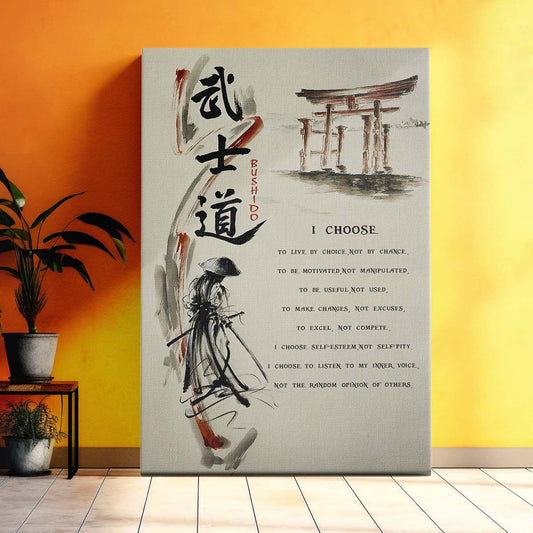 武士道
BUSHIDO
I CHOOSE
TO LIVE BY CHOICE, NOT BY CHANCE.
TO BE MOTIVATED, NOT MANIPULATED.
TO BE USEFUL, NOT USED.
TO MAKE CHANGES, NOT EXCUSES.
TO EXCEL, NOT COMPETE.
I CHOOSE SELF-ESTEEM, NOT SELF-PITY.
I CHOOSE TO LISTEN TO MY INNER VOICE,
NOT THE RANDOM OPINION OF OTHERS.